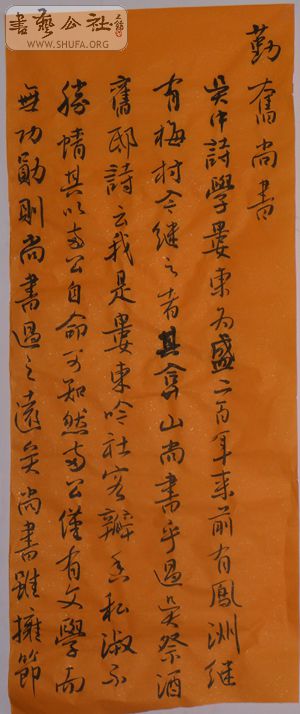 書藝公社
WWW.SHUFA.ORG
勤奮尚書
吳中詩學婁東為盛二百年來前有鳳洲継
有梅村今継之者其弇山尚書乎過吳祭酒
舊邸詩云我是婁東吟社客瓣香私淑不
勝情其以両公自命可知然両公僅有文學而
無功勛則尚書過之遠矣尚書雖擁節